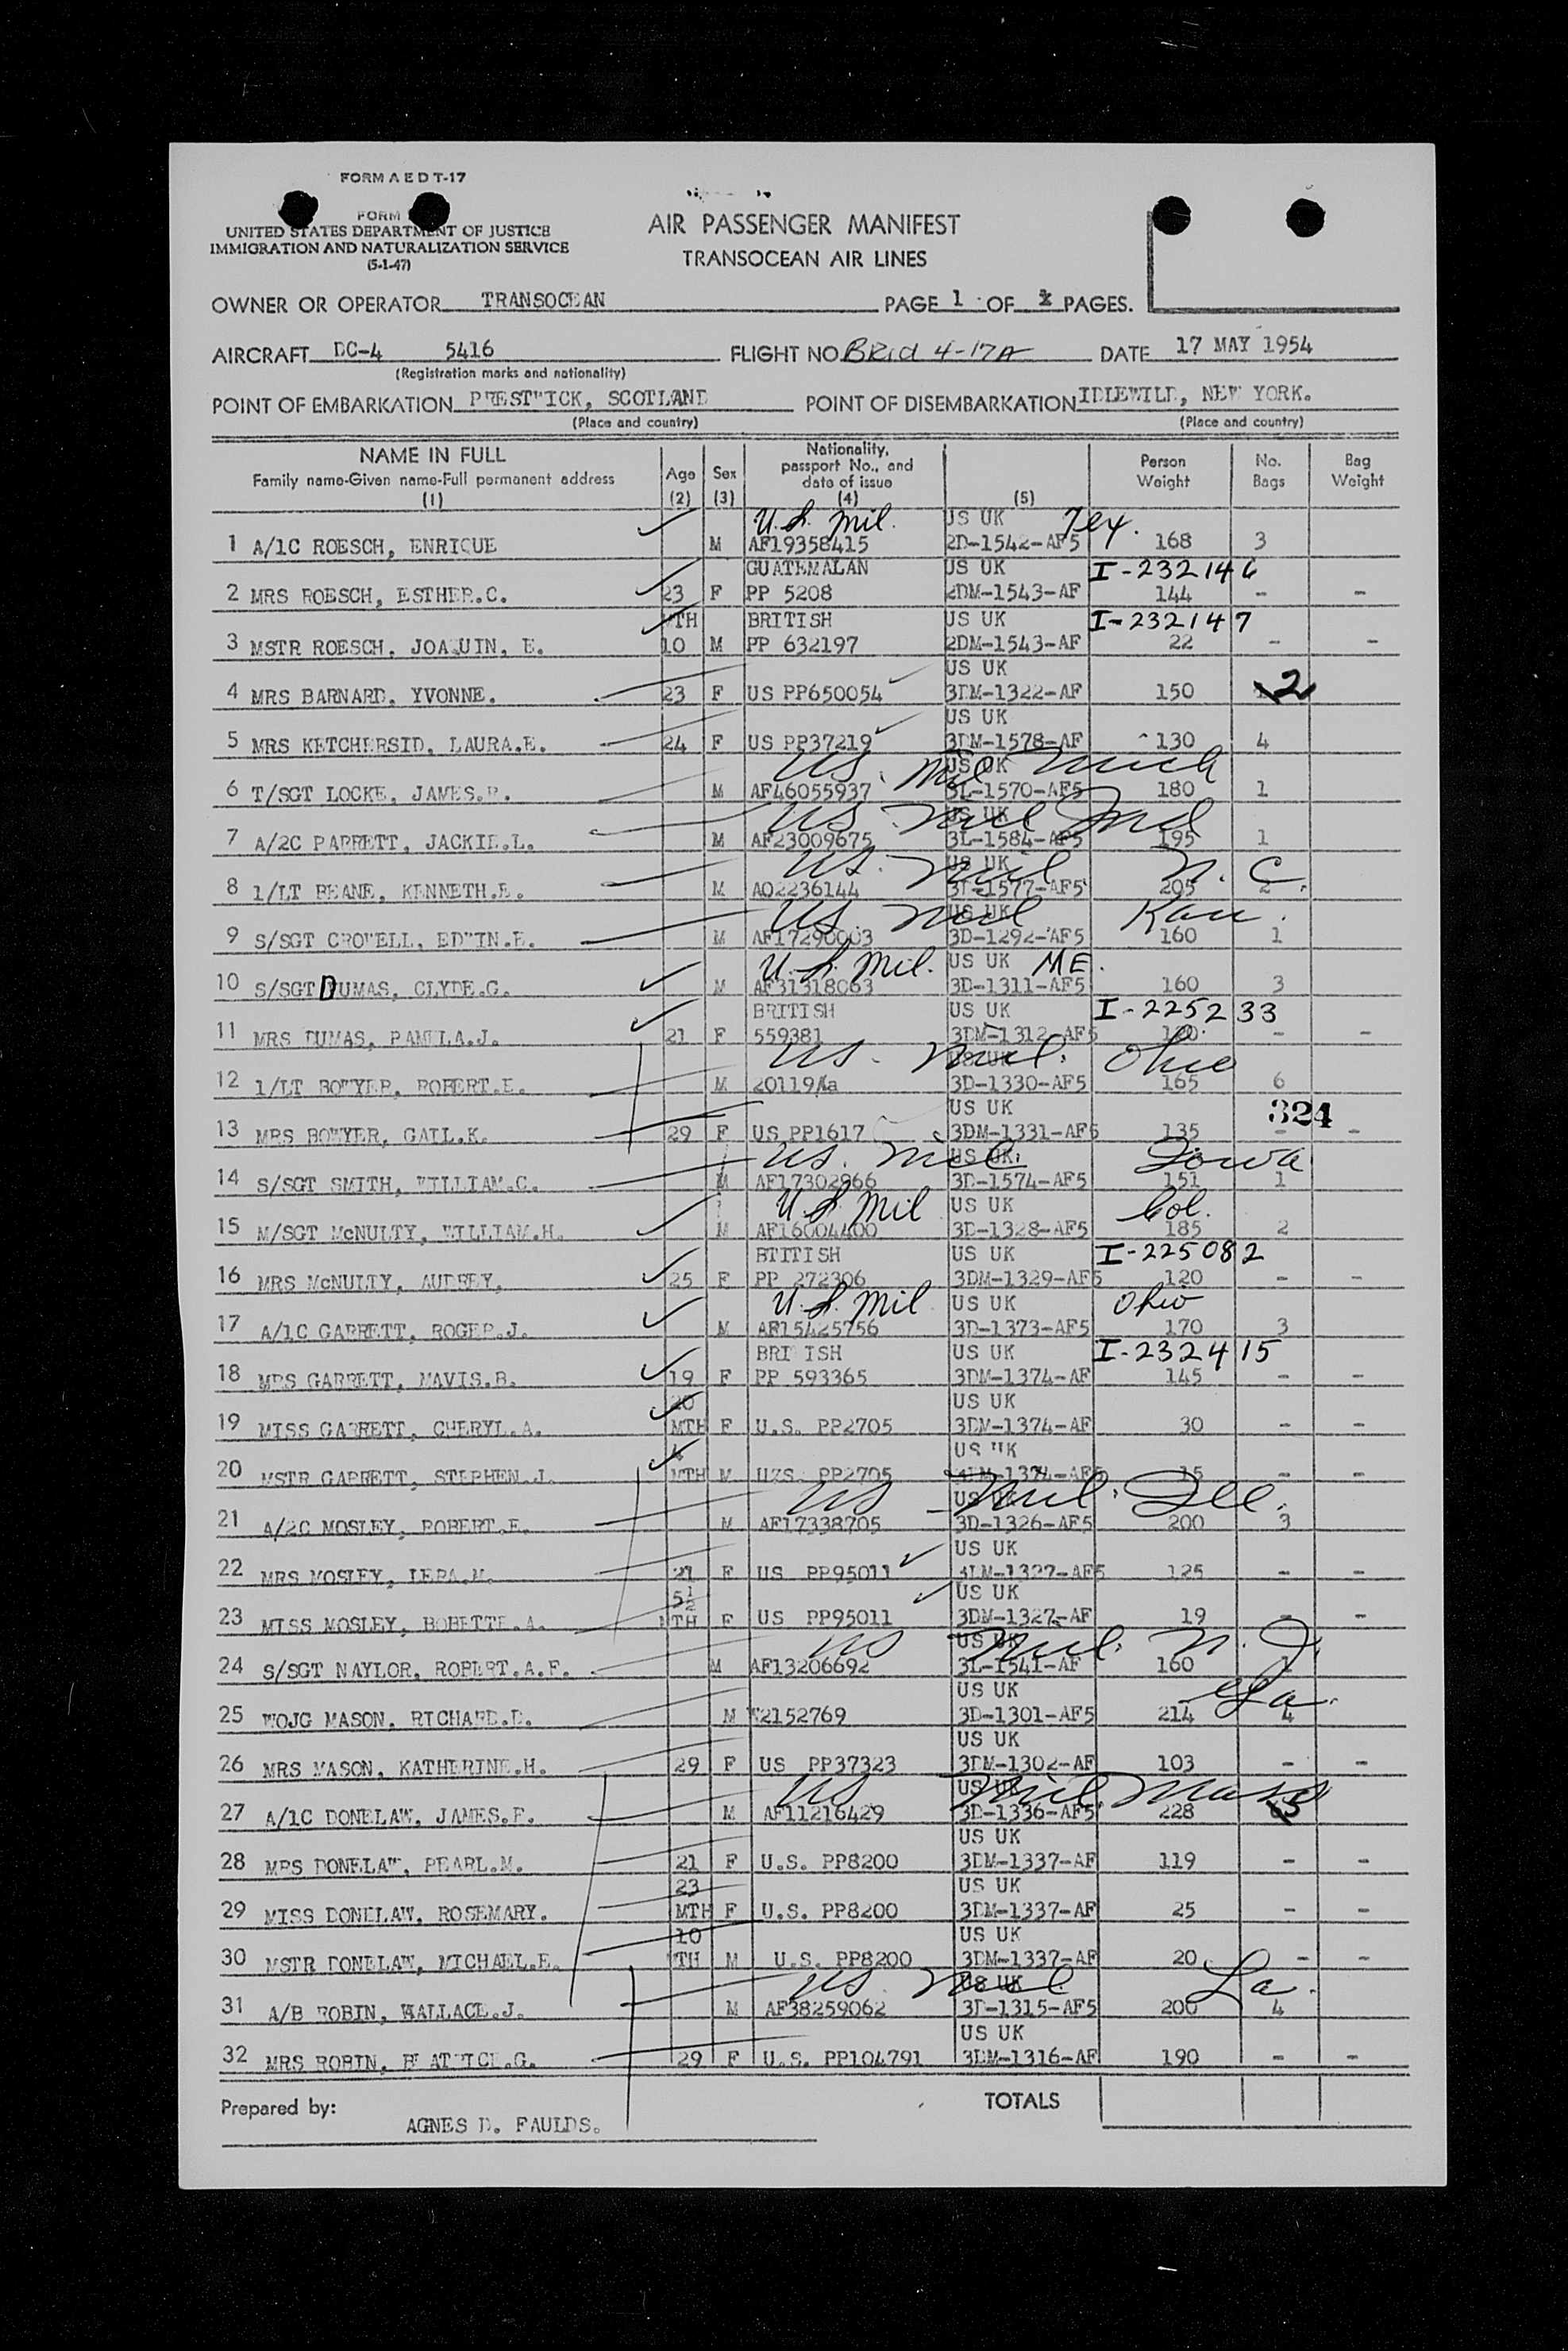 FORM A E D T-17
FORM
UNITED STATES DEPARTMENT OF JUSTICE
IMMIGRATION AND NATURALIZATION SERVICE
(5-1-47)
AIR PASSENGER MANIFEST
TRANSOCEAN AIR LINES
OWNER OR OPERATOR TRANSOCEAN PAGE 1 OF PAGES.
AIRCRAFT DC-4 5416 FLIGHT NO BRid 4-17A DATE 17 MAY 1954
(Registration marks and nationality)
POINT OF EMBARKATION PRESTWICK, SCOTLAND POINT OF DISEMBARKATION IDLEWILD, NEW YORK.
(Place and country) (Place and country)
NAME IN FULL
Family name-Given name-Full permanent address
(1)
Age (2)
Sex (3)
Nationality, passport No., and date of issue (4)
(5)
Person Weight
No. Bags
Bag Weight
U.S. Mil. US UK Tex.
1 A/1C ROESCH, ENRIQUE M AF19358415 2D-1542-AF5 168 3
GUATEMALAN US UK I-232146
2 MRS ROESCH, ESTHER.C. 23 F PP 5208 2DM-1543-AF 144 - -
MTH BRITISH US UK I-232147
3 MSTR ROESCH, JOAQUIN, E. 10 M PP 632197 2DM-1543-AF 22 - -
US UK
4 MRS BARNARD, YVONNE. 23 F US PP650054 3DM-1322-AF 150 2
US UK
5 MRS KETCHERSID, LAURA.E. 24 F US PP37219 3DM-1578-AF 130 4
US Mil US UK Mich
6 T/SGT LOCKE, JAMES.R. M AF46055937 3L-1570-AF5 180 1
US Mil US UK Ind
7 A/2C PARRETT, JACKIE.L. M AF23009675 3L-1584-AF5 195 1
US. Mil US UK N. C.
8 1/LT BEANE, KENNETH.E. M AO2236144 3L-1577-AF5 205 2
US Mil US UK Kan.
9 S/SGT CROWELL, EDWIN.E. M AF17290003 3D-1292-AF5 160 1
U.S. Mil. US UK ME.
10 S/SGT DUMAS, CLYDE.G. M AF31318063 3D-1311-AF5 160 3
BRITISH US UK I-225233
11 MRS DUMAS, PAMELA.J. 21 F 559381 3DM-1312-AF5 - -
US. Mil. US UK Ohio
12 1/LT BOWYER, ROBERT.E. M 20119/Aa 3D-1330-AF5 165 6
US UK 324
13 MRS BOWYER, GAIL.K. 29 F US PP1617 3DM-1331-AF5 135 - -
US. Mil US UK Iowa
14 S/SGT SMITH, WILLIAM.C. M AF17302966 3D-1574-AF5 151 1
U.S. Mil US UK Col.
15 M/SGT McNULTY, WILLIAM.H. M AF16004400 3D-1328-AF5 185 2
BTITISH US UK I-225082
16 MRS McNULTY, AUDREY, 25 F PP 272306 3DM-1329-AF5 120 - -
U.S. Mil US UK Ohio
17 A/1C GARRETT, ROGER.J. M AF15425756 3D-1373-AF5 170 3
BRI ISH US UK I-232415
18 MRS GARRETT, MAVIS.B. 19 F PP 593365 3DM-1374-AF 145 - -
20 US UK
19 MISS GARRETT, CHERYL.A. MTH F U.S. PP2705 3DM-1374-AF 30 - -
US UK
20 MSTR GARRETT, STEPHEN.J. MTH M UZS. PP2705 3DM-1374-AF5 15 - -
US Mil. US UK Ill.
21 A/2C MOSLEY, ROBERT.E. M AF17338705 3D-1326-AF5 200 3
US UK
22 MRS MOSLEY, LERA.M. 21 F US PP95011 3DM-1327-AF5 125 - -
5½ US UK
23 MISS MOSLEY, BOBETTE.A. MTH F US PP95011 3DM-1327-AF 19 - -
US Mil. US UK N. J.
24 S/SGT NAYLOR, ROBERT.A.F. M AF13206692 3L-1541-AF 160 1
US UK Ga.
25 WOJG MASON, RICHARD.D. M W2152769 3D-1301-AF5 214 4
US UK
26 MRS MASON, KATHERINE.H. 29 F US PP37323 3DM-1302-AF 103 - -
US Mil US UK Mass
27 A/1C DONELAW, JAMES.F. M AF11216429 3D-1336-AF5 228 5
US UK
28 MRS DONELAW, PEARL.M. 21 F U.S. PP8200 3DM-1337-AF 119 - -
23 US UK
29 MISS DONELAW, ROSEMARY. MTH F U.S. PP8200 3DM-1337-AF 25 - -
10 US UK
30 MSTR DONELAW, MICHAEL.E. MTH M U.S. PP8200 3DM-1337-AF 20 - -
US Mil US UK La.
31 A/B ROBIN, WALLACE.J. M AF38259062 3D-1315-AF5 200 4
US UK
32 MRS ROBIN, BEATRICE.G. 29 F U.S. PP104791 3DM-1316-AF 190 - -
Prepared by: TOTALS
AGNES D. FAULDS.